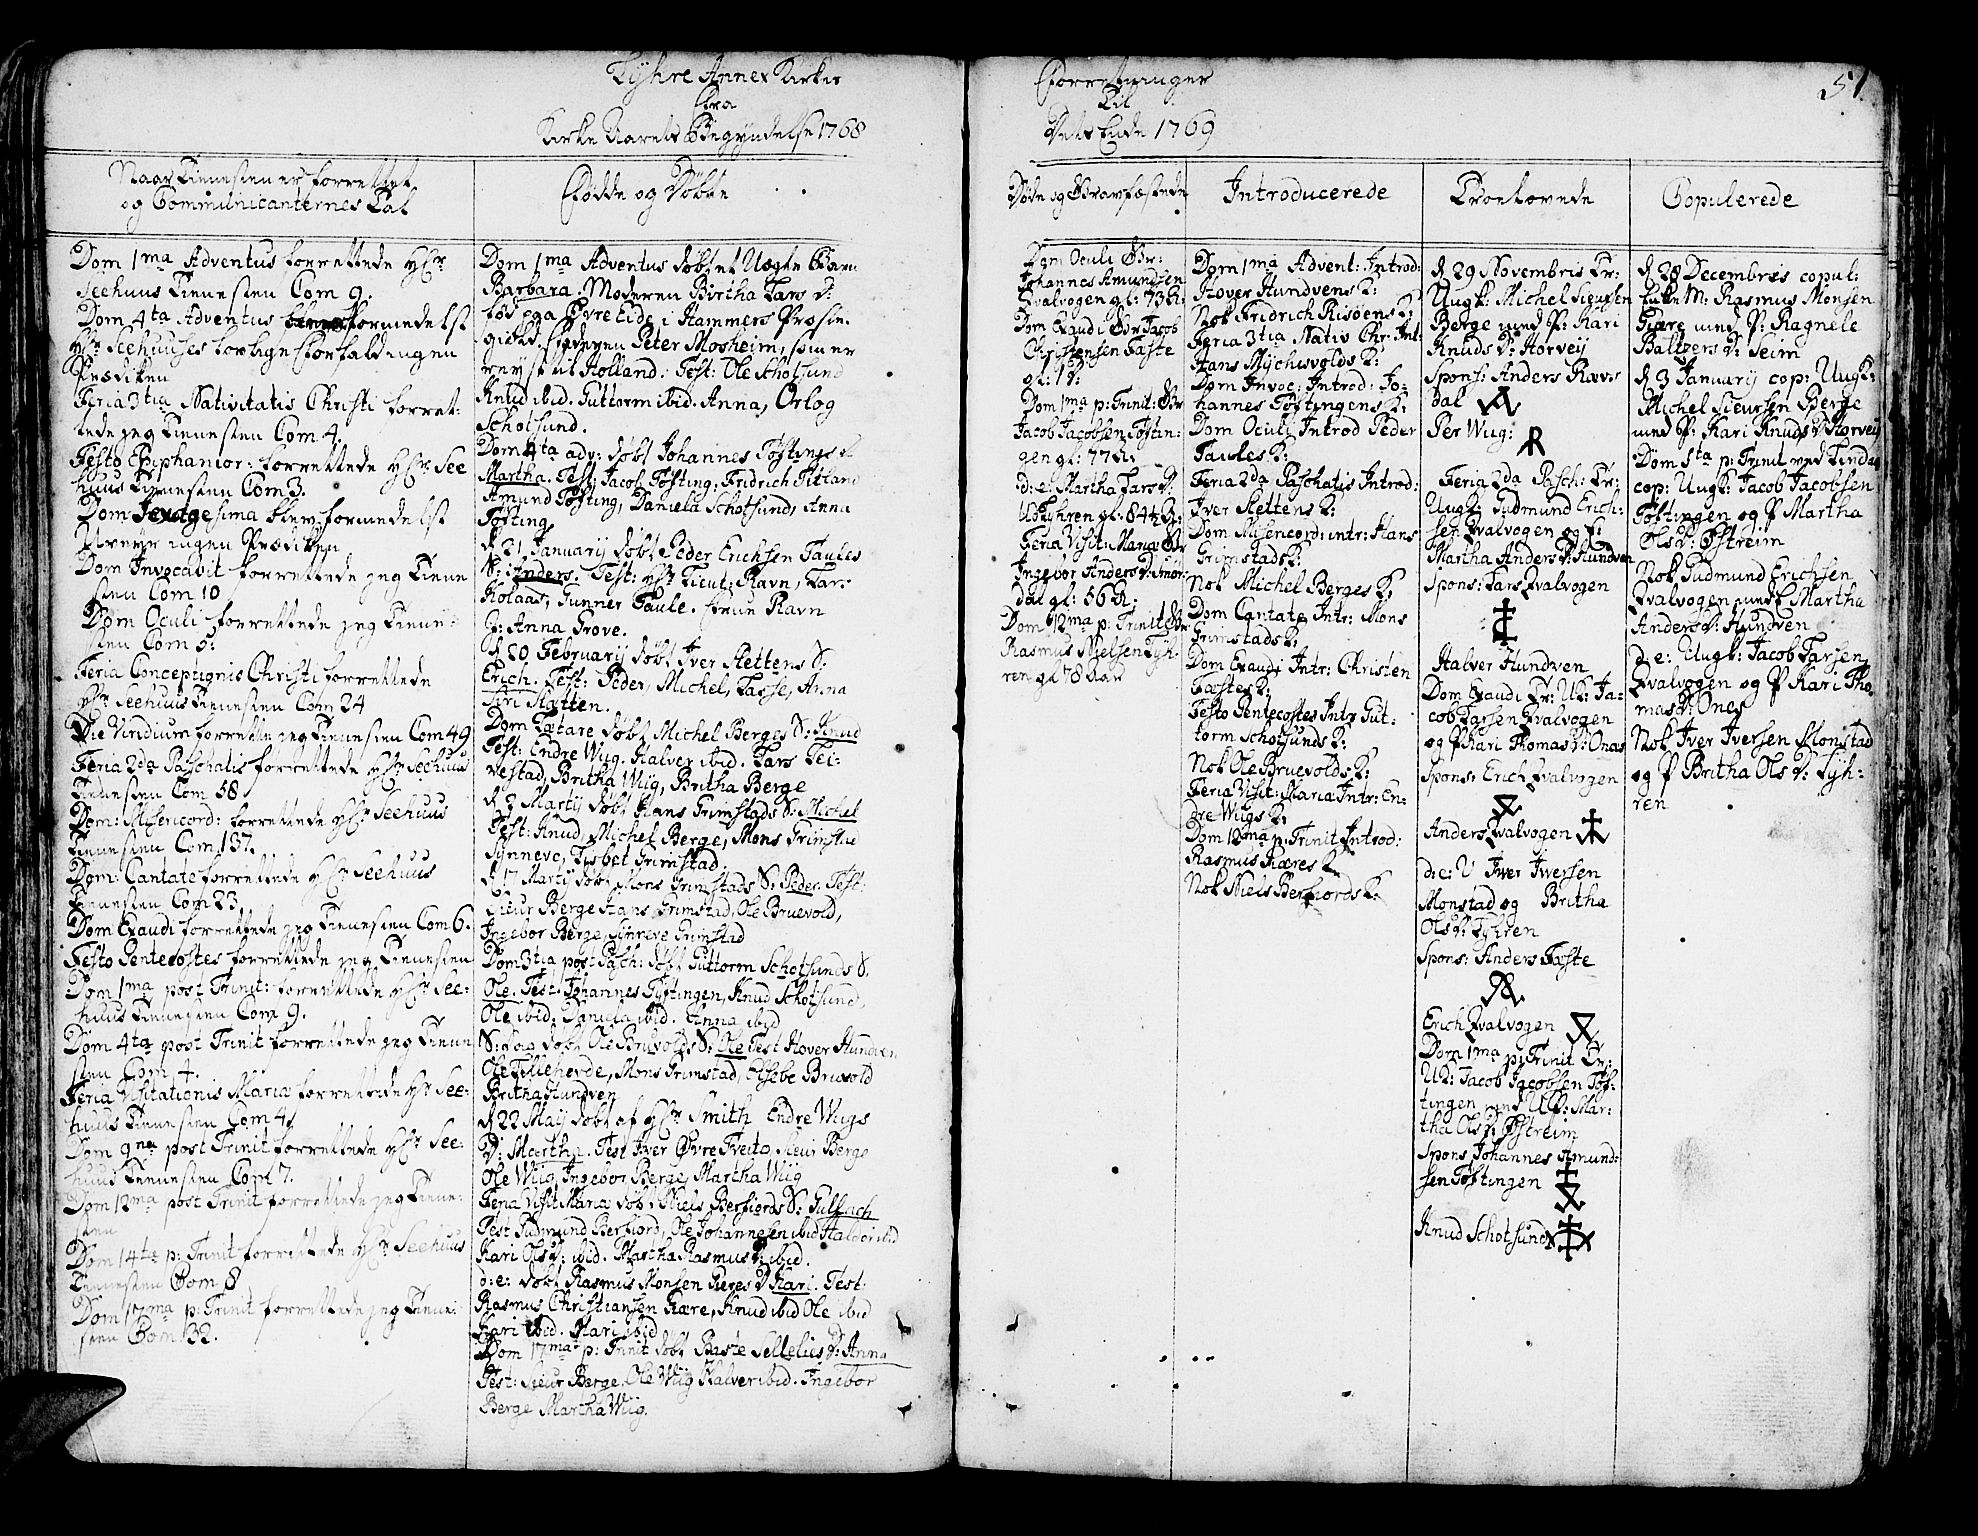 Lyhre Annex Kirkes
fra
Kirke Aarets Begyndelse 1768
Forretninger
Til
Dets Ende 1769
51.
Naar Tienesten er forrettet
og Communicanternes Tal
Dom 1ma Adventus forrettede Hr
Seehuus Tienesten Com 9.
Dom 4ta Adventus formedelst
Hr Seehuuses lovlige forfald ingen
Prædiken
Feria 3tia Nativitatis Christi forret-
tede jeg Tienesten Com 4.
Festo Epiphanior: forrettede Hr See
huus Tienesten Com 3.
Dom Sexagesima blev formedelst
Uveyr ingen Prædiken
Dom Invocavit forrettede jeg Tiene
sten Com 10
Dom Oculi forrettede jeg Tiene-
sten Com 5:
Feria Conceptionis Christi forrettede
Hr Seehuus Tienesten Com 24
Die Viridium forrettede jeg Tienesten Com 49
Feria 2da Paschatis forrettede Hr Seehuus
Tienesten Com 58
Dom: Misericord: forrettede Hr Seehuus
Tienesten Com 137.
Dom: Cantate forrettede Hr Seehuus
Tienesten Com 23
Dom Exaudi forrettede jeg Tienesten Com 6.
Festo Pentecostes forrettede jeg Tienesten
Dom 1ma post Trinit: forrettede Hr See-
huus Tienesten Com 9.
Dom 4ta post Trinit forrettede jeg Tiene
sten Com 4.
Feria Visitationis Mariæ forrettede Hr See-
huus Tienesten Com 4
Dom 9na post Trinit forrettede Hr See-
huus Tienesten Com 7.
Dom 12ma post Trinit forrettede jeg Tiene-
sten
Dom 14ta p: Trinit forrettede Hr Seehuus
Tienesten Com 8
Dom 17ma p: Trinit forrettede jeg Tiene-
sten Com 32.
Fødde og Døbte
Dom 1ma Adventus døbt et Uægte Barn
Barbara. Moderen Birtha Lars D:
fød paa Evretide i Hammers Præste-
gield. Faderen Peter Mosheim, som er
reyst til Holland. Test: Ole Schotsund
Knud ibid. Guttorm ibid. Anna, Orlog
Schotsund.
Dom 4ta adv: døbt Johannes Tøftings
Martha. Test: Jacob Tøfting, Fridrich Titland
Amund Tøfting, Daniela Schotsund, Anna
Tøfting
d 21 Januarij døbt Peder Erichsen Taules
S: Anders. Test: Hr Lieut: Ravn, Lar:
Kolaas, Gunner Taule. Frue Ravn
J: Anna Grove.
d 10 Februarij døbt Iver Slettens S:
Erich. Test: Peder, Michel, Lasse, Anna
Siri Sletten.
Dom Lætare døbt Michel Berges S: Knud
Test: Endre Wiig. Halver ibid. Lars Tei-
gestad, Britha Wiig, Britha Berge
d 2 Martij døbt Hans Grimstads S: Michel
Test: Knud, Michel Berge, Mons Grimstad
Synneve, Lisbet Grimstad.
d 17 Martij døbt Mons Grimstads S: Peder. Test:
Sieur Berge Hans Grimstad, Ole Bruevold,
Ingebor Berge, Synneve Grimstad
Dom 3tia post Pasch: døbt Guttorm Schotsunds S.
Ole. Test: Johannes Tøftingen, Knud Schotsund,
Ole ibid: Daniela ibid. Anna ibid
S: dag døbt Ole Bruvolds S: Ole Test Hover Hundven
Ole Tilleherde, Mons Grimstad, Elsebe Bruvold
Britha Hundven
d 22 Maij døbt af Hr Smith Endre Wiigs
D: Martha. Test Iver Øvre Tveito, Sieur Berge
Ole Wiig, Ingebor Berge, Martha Wiig
Feria Visit Mariæ døbt Niels Berfiords S: Gullach
Test Gudmund Berfiord, Ole Johannesen ibid Halvor ibid
Kari Ols D: ibid. Martha Rasmus D: ibid.
d: e: døbt Rasmus Monsen Kieres D Kari. Test:
Rasmus Christiansen Kære, Knud ibid Ole ibid
Kari ibid. Mari ibid
Dom 17ma p: Trinit døbt Baste Sellelies D: Anna
Test: Sieur Berge. Ole Wiig Halver ibid. Ingebor
Berge Martha Wiig.
Døde og Gravfæstede
Dom Oculi Gr:
Johannes Amundsen
Qvalvogen gl: 73 A:
Dom Exaudi Gr: Jacob
Christensen Fæste
gl: 1 D:
Dom 1ma p: Trinit: Gr
Jacob Jacobsen Tøftin-
gen gl: 77 A:
d: e: Martha Lars D:
Lyhren gl: 84½ A:
Feria Visit: Mariæ Gr
Ingebor Anders D: Mør-
dal gl: 56 A:
Dom 12ma p: Trinit Gr
Rasmus Nielsen Lyh-
ren gl 78 Aar
Introducerede
Dom 1ma Advent: Introd:
Hover Hundvens K:
Nok Fridrich Risøens K:
Feria 3tia Nativ Chr: Int:
Hans Mychisvolds K:
Dom Invoc: Introd: Jo-
hannes Tøftingens K:
Dom Oculi Introd Peder
Taules K:
Feria 2da Paschatis Introd:
Iver Slettens K:
Dom Misericord: intr: Hans
Grimstads K:
Nok Michel Berges K:
Dom Cantate Intr: Mons
Grimstads K:
Dom Exaudi Intr: Christen
Fæstes K:
Festo Pentecostes Intr Gut-
torm Schotsunds K:
Nok Ole Bruevolds K:
Feria Visit: Mariæ Intr: En-
dre Wiigs K:
Dom 12ma p: Trinit Introd:
Rasmus Kæres K
Nok Niels Berfiords K:
Troelovede
d 29 Novembris Tr:
Ungk: Michel Sieursen
Berge med P: Kari
Knuds D: Horvey
Spons: Anders Ravs
dal
Per Wiig:
Feria 2da Pasch: Tr:
Ungk: Gudmund Erich-
sen Qvalvogen og E
Martha Anders D: Hundven
Spons: Lars Qvalvogen
Halver Hundven
Dom Exaudi Tr: UK: Ja-
cob Larsen Qvalvogen
og P Kari Thomas D: Onæs
Spons: Erich Qvalvogen
Anders Qvalvogen
d: e: U Iwer Iwersen
Monstad og Britha
Ols D: Lyhren
Spons: Anders Fæste
Erich Qvalvogen
Dom 1ma p: Trinit Tr:
UK: Jacob Jacobsen Tøf-
tingen med U P: Mar-
tha Ols D: Østreim
Spons Johannes Amund-
sen Tøftingen
Knud Schotsund
Copulerede
d 28 Decembris copul:
Enke M: Rasmus Monsen
Kiære med P: Ragnele
Baltzers D: Seim
d 3 Januarij cop: Ungk:
Michel Sieursen Berge
med P: Kari Knuds D Horvey
Dom 5ta p: Trinit ved Lindaas
cop: Ungk: Jacob Jacobsen
Tøftingen og P Martha
Ols D: Østreim
Nok Gudmund Erichsen
Qvalvogen med E Martha
Anders D: Hundven
d: e: Ungk: Jacob Larsen
Qvalvogen og P Kari Tho-
mas D: Ones
Nok Iver Iversen Monstad
og P Britha Ols D: Lyh-
ren